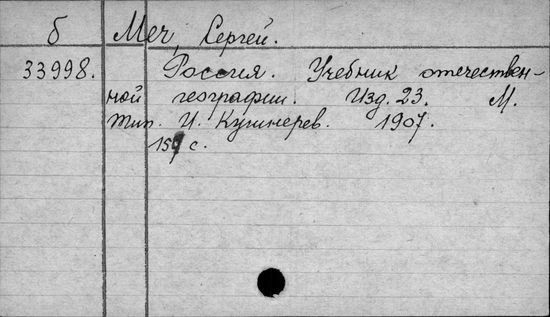 б Меч, Сергей.
33998. Россия. Учебник отечествен-
ной географии. Изд. 23. М.
Тип. И. Кушнерев. 1907.
с.